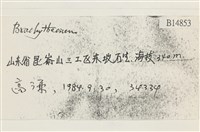 B14853
Brachytheorem
山东省昆嵛山三工区东坡石生 海拔340m
高谦, 1984.9.30, 34334